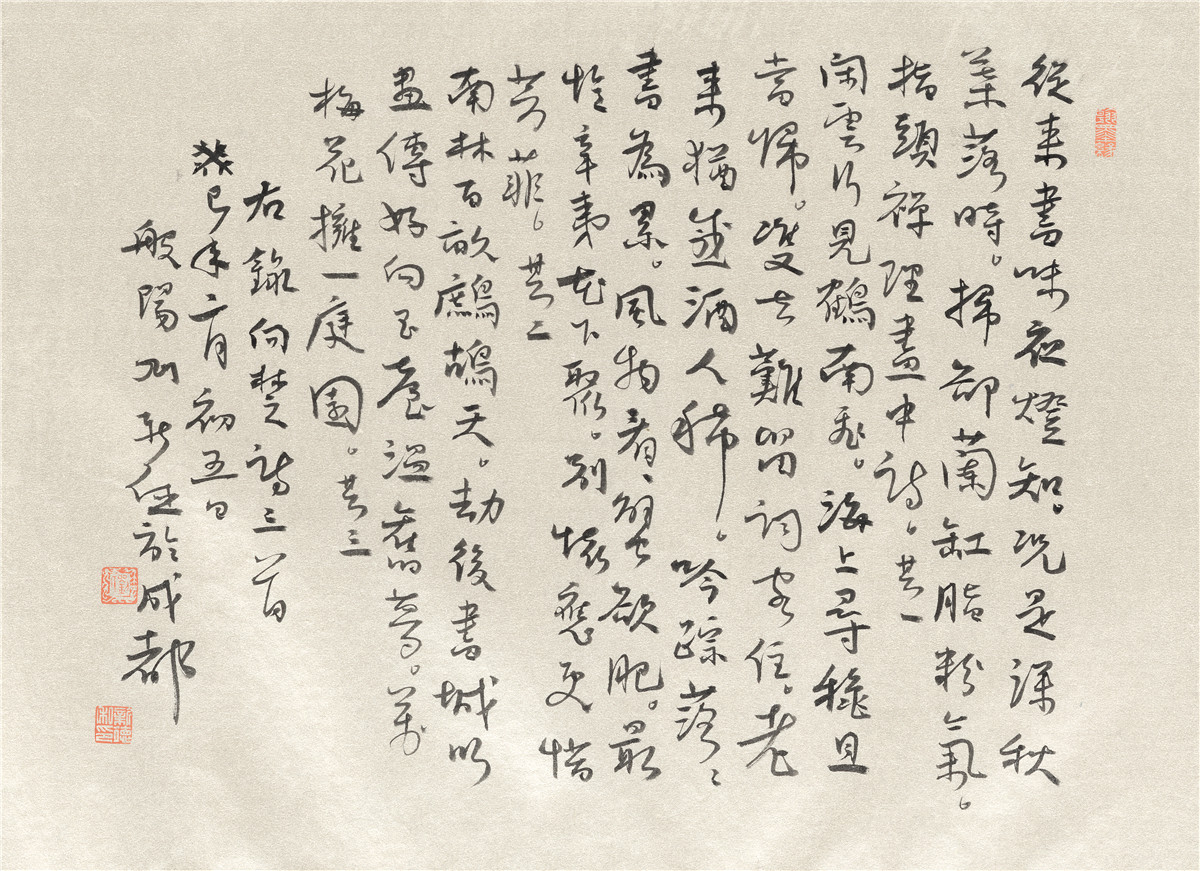 從来書味夜燈知。況是深秋
葉落時。掃卻蘭缸脂粉氣。
指頭禪理畫中詩。其一
閑雲行見鶴南飛。海上尋穐且
當歸。雙去難留詞客住。老
来猶遊酒人稀。吟蹤落〻
書為累。風物看〻蟹欲肥。最
憶辛夷花下聚。別懷應更惜
芳菲。其二
南林百畝鷓鴣天。劫後書城
畫傳好向石庵溫舊夢。萬
梅花擁一庭園。其三
右錄向楚詩三首
癸巳年二月初五日
般陽 於成都